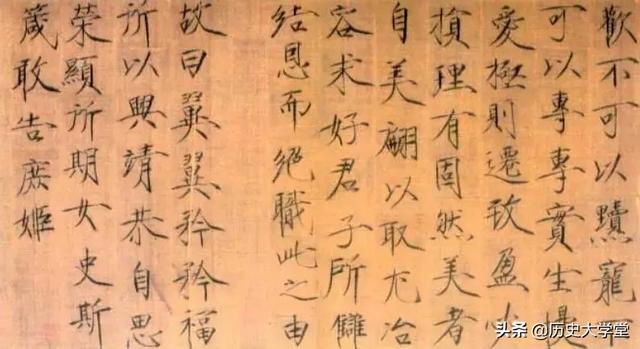 歡不可以黷寵不
可以專專實生慢
愛極則遷致盈必
損理有固然美者
自美翩以取尤冶
容求好君子所讎
結恩而絕職此之由
故曰翼翼矜矜福
所以興靖恭自思
榮顯所期女史斯
箴敢告庶姬
头条 @历史大学堂